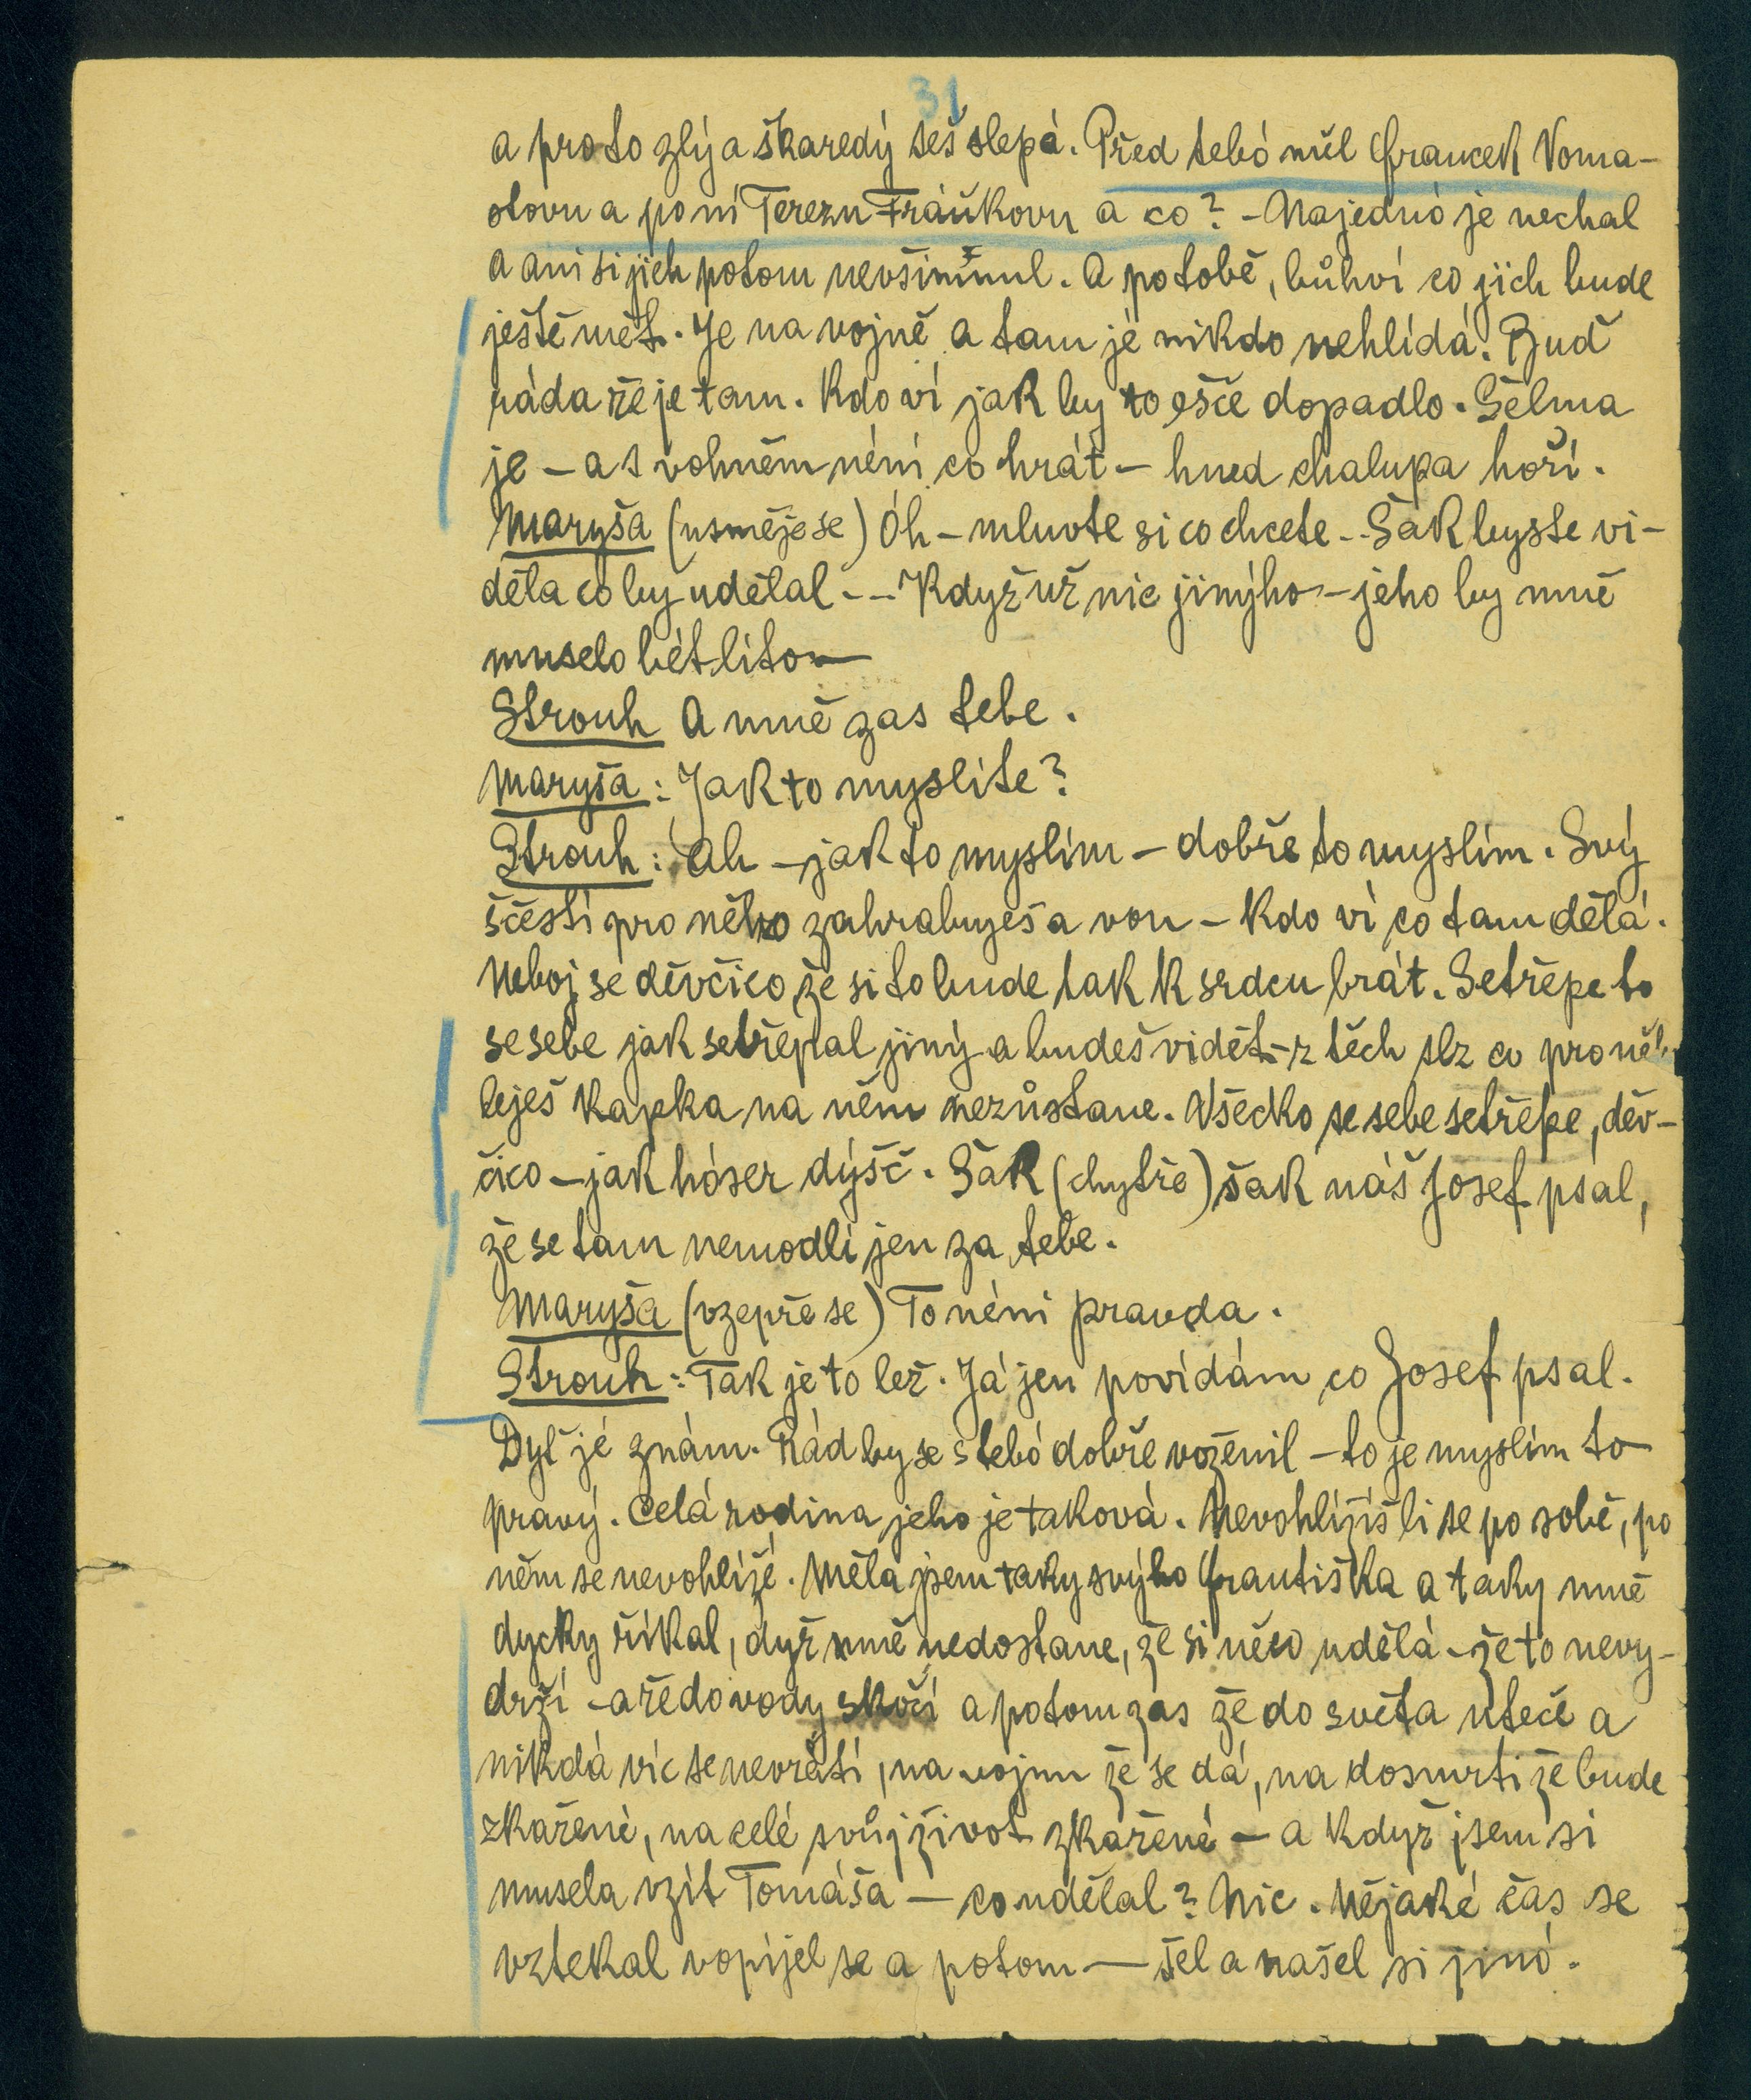 31
a proto zlý a škaredý seš slepá. Před tebó měl Francek Voma-
olovu a po ní Terezu Fráňkovu a co? - Najednó je nechal
a ani si jich potom nevšimnul. A po tobě, bůhví co jich bude
ještě mět. Je na vojně a tam je nikdo nehlídá. Buď
ráda že je tam. Kdo ví jak by to ešče dopadlo. Šelma
je - a s vohněm néni co hrát - hned chalupa hoří.
Maryša (usměje se) Óh - mluvte si co chcete - - Šak byste vi-
děla co by udělal - - - Když už nic jinýho - jeho by mně
muselo bét líto -
Strouh A mně zas tebe.
Maryša: Jak to myslíte?
Strouh: Ah - jak to myslím - dobře to myslím. Svý
ščestí pro něho zahrabuješ a von - kdo ví co tam dělá.
Neboj se děvčico že si to bude tak k srdcu brát. Setřepe to
se sebe jak setřepal jiný a budeš vidět - z těch slz co pro něho
leješ kapka na něm nezůstane. Všecko se sebe setřepe, děv-
čico - jak hóser dýšč. Šak (chytře) šak náš Josef psal,
že se tam nemodlí jen za tebe.
Maryša (vzepře se) To néni pravda.
Strouh: Tak je to lež. Já jen povídám co Josef psal.
Dyť jé znám. Rád by se s tebó dobře voženil - to je myslím to
pravý. Celá rodina jeho je taková. Nevohlížíš li se po sobě, po
něm se nevohlížé. Měla jsem taky svýho Františka a taky mně
dycky říkal, dyž mně nedostane, že si něco udělá - že to nevy-
drží - a že do vody skočí a potom zas že do světa uteče a
nikdá víc se nevrátí, na vojnu že se dá, na dosmrti že bude
zkažené, na celé svůj život zkažené - a když jsem si
musela vzít Tomáša - co udělal? Nic. Nějaké čas se
vztekal vopíjel se a potom - šel a našel si jinó.